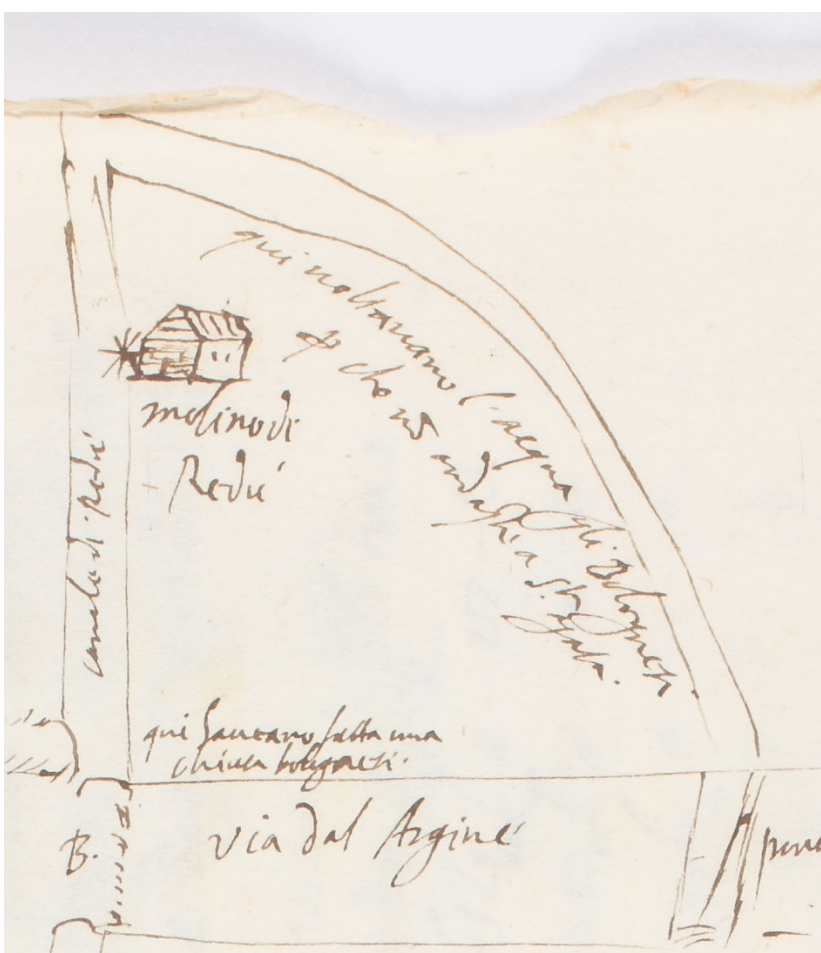 qui voltavano l'acqua gli Bolognesi
che nō andasse a S.ta Agata.
molino di
Redù
canale di redù
qui haueano fatta una
chiusa bolognesi.
B.
via dal Argine